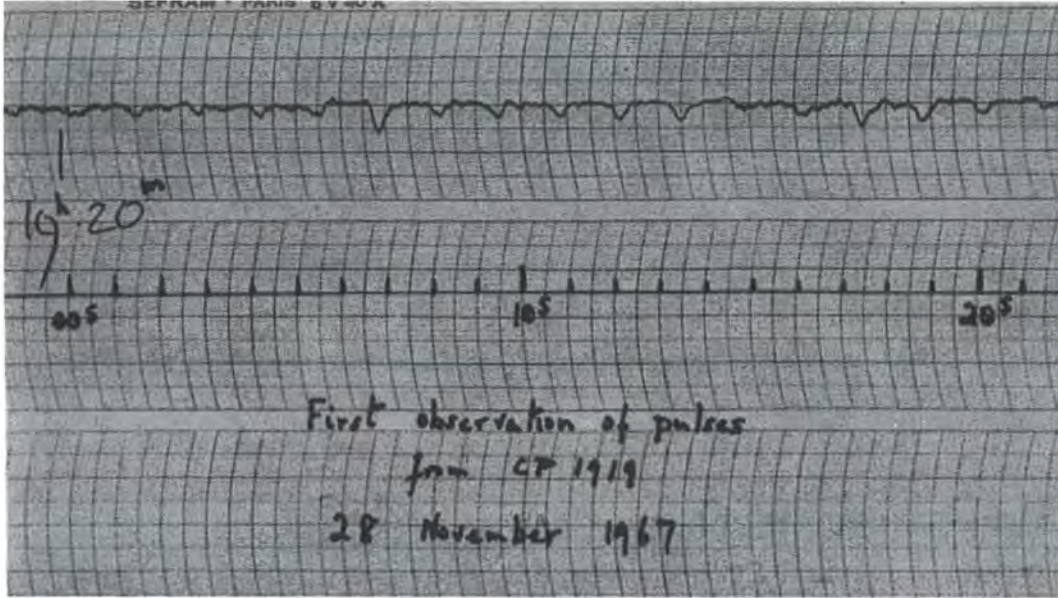 SEFRAM - PARIS
19ʰ 20ᵐ
00ˢ 10ˢ 20ˢ
First observation of pulses
from CP 1919
28 November 1967